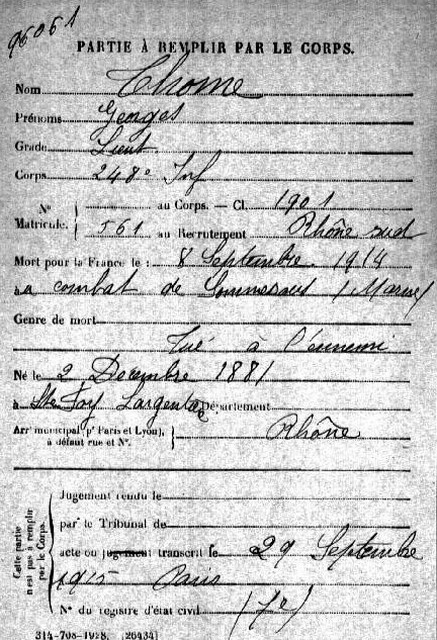 96061
PARTIE À REMPLIR PAR LE CORPS.
Nom Thome
Prénoms Georges
Grade Lieut
Corps 248e Inf
N° au Corps. — Cl. 1901
Matricule. 561 au Recrutement Rhône sud
Mort pour la France le : 8 Septembre 1914
à a combat de Sommesous (Marne)
Genre de mort
Tué à l'ennemi
Né le 2 Decembre 1881
à Ste Foy Largentière Département
Arrt municipal (pr Paris et Lyon), à défaut rue et N°. Rhône
Cette partie n'est pas à remplir par le Corps.
Jugement rendu le
par le Tribunal de
acte ou jugement transcrit le 29 Septembre
1915 Paris
N° du registre d'état civil (7e)
314-708-1928. [26434]